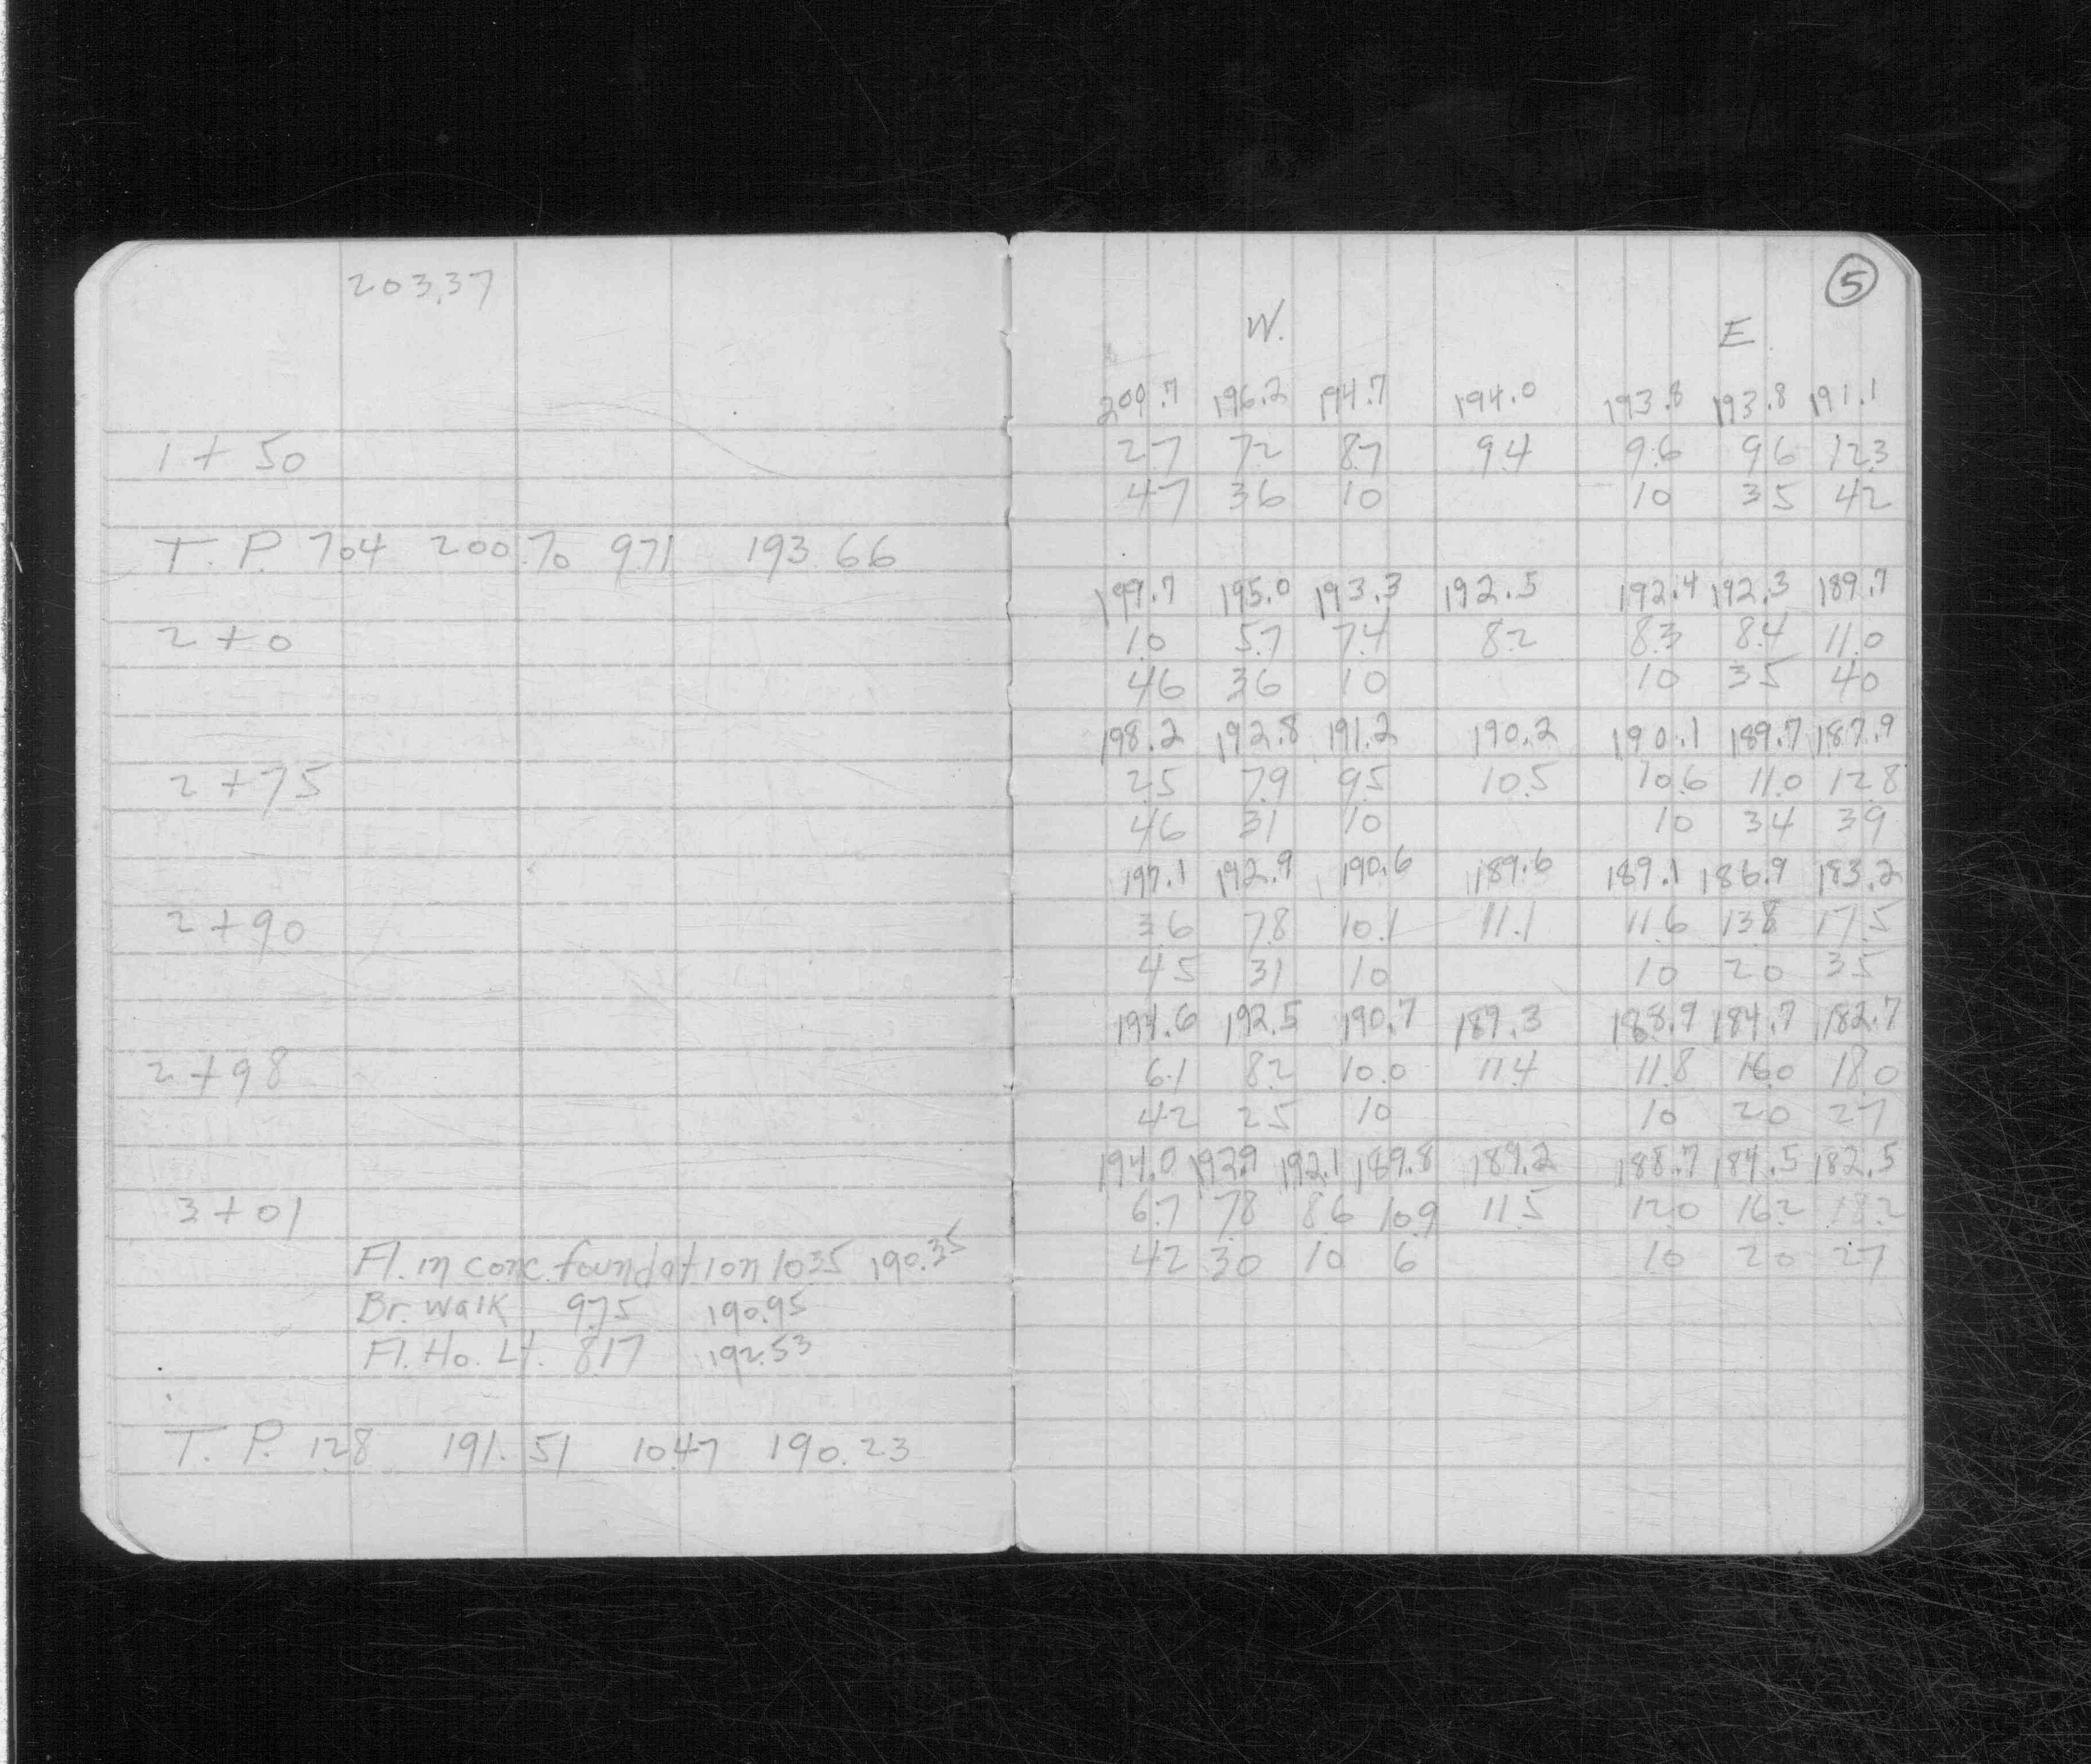 203.37
1 + 50
T. P. 704 200.70 971 193.66
2 + 0
2 + 75
2 + 90
2 + 98
3 + 01
Fl. in conc. foundation 1035 190.35
Br. walk 975 190.95
Fl. Ho. Lt. 817 192.53
T. P. 128 191.51 1047 190.23
5
W. E.
200.7 196.2 194.7 194.0 193.8 193.8 191.1
27 72 87 94 9.6 96 123
47 36 10 10 35 42
199.7 195.0 193.3 192.5 192.4 192.3 189.7
1.0 5.7 7.4 8.2 8.3 8.4 11.0
46 36 10 10 35 40
198.2 192.8 191.2 190.2 190.1 189.7 187.9
2.5 7.9 9.5 10.5 10.6 11.0 12.8
46 31 10 10 34 39
197.1 192.9 190.6 189.6 189.1 186.9 183.2
3.6 7.8 10.1 11.1 11.6 13.8 17.5
45 31 10 10 20 35
194.6 192.5 190.7 189.3 188.9 184.7 182.7
6.1 8.2 10.0 11.4 11.8 16.0 18.0
42 25 10 10 20 27
194.0 192.9 192.1 189.8 189.2 188.7 184.5 182.5
6.7 7.8 8.6 10.9 11.5 12.0 16.2 18.2
42 30 10 6 10 20 27